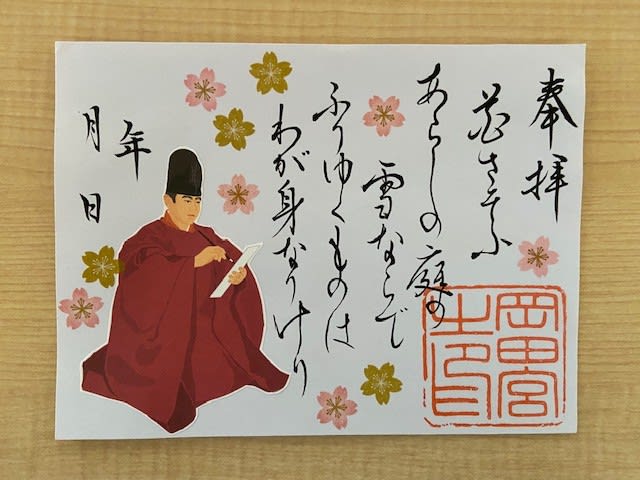 奉拝
花さそふ
あらしの庭の
雪ならで
ふりゆくものは
わが身なりけり
年
月
日
岡田宮
之印